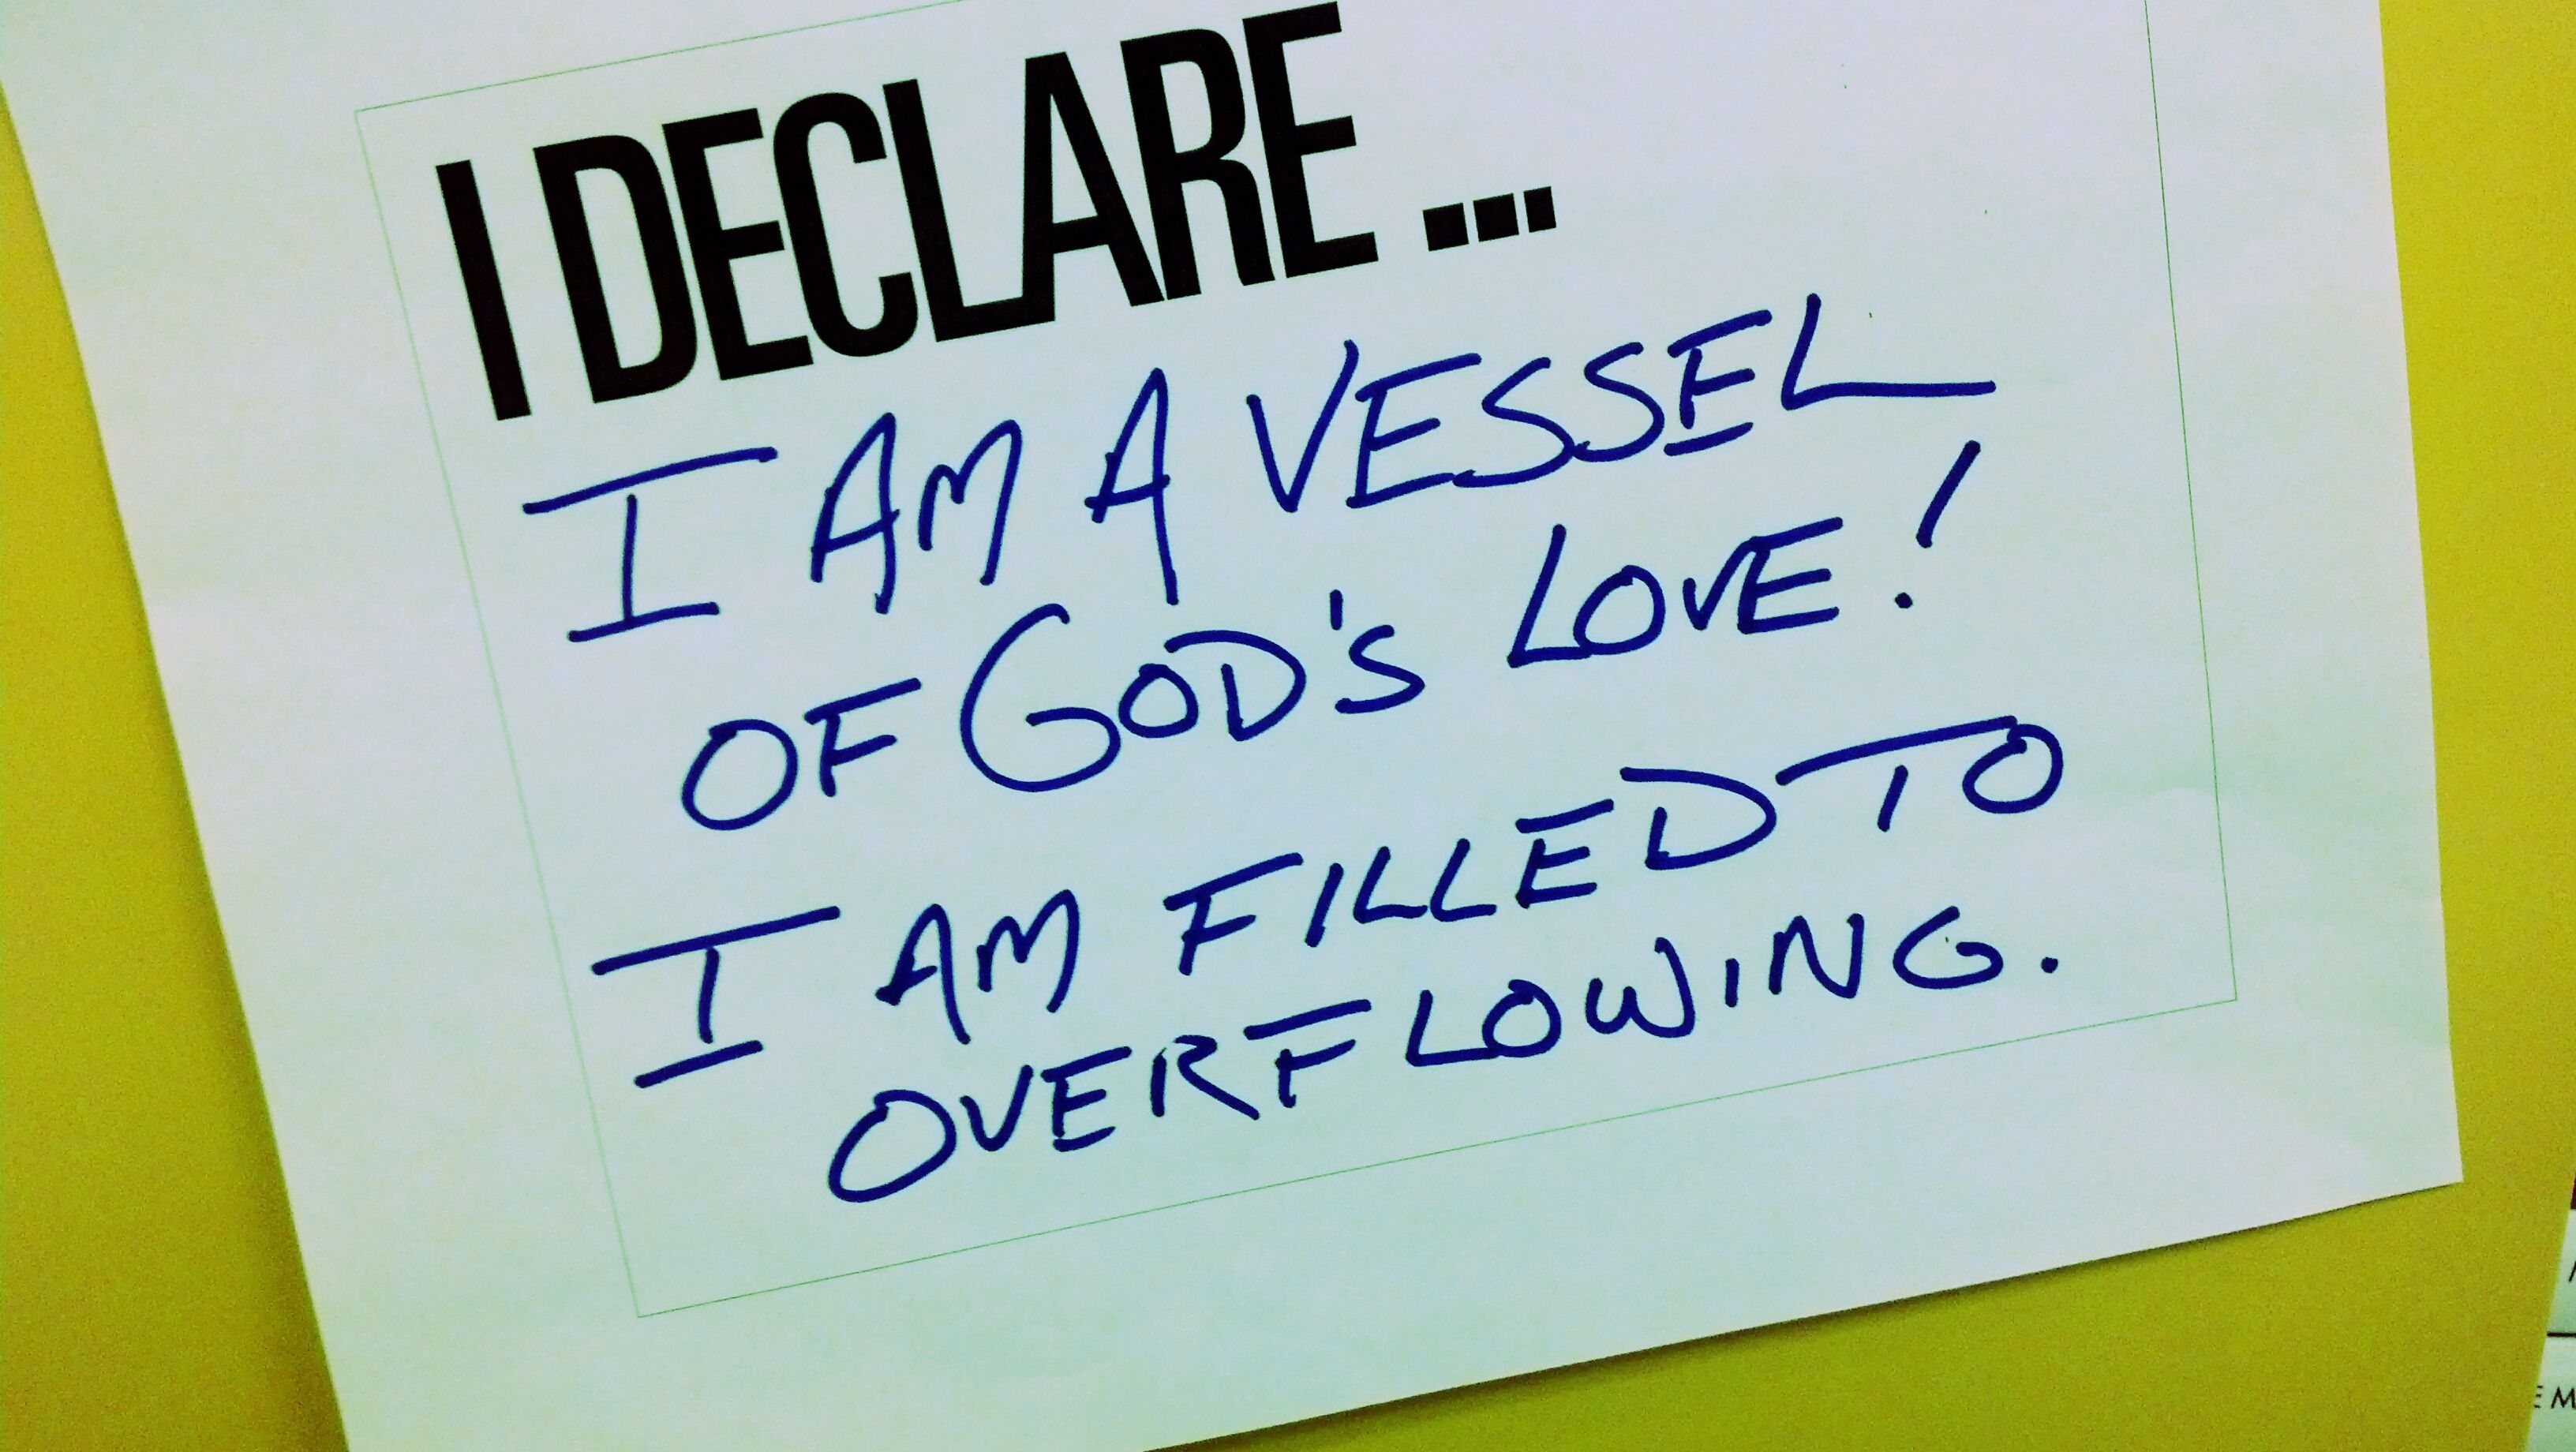 I DECLARE...
I AM A VESSEL
OF GOD'S LOVE!
I AM FILLED TO
OVERFLOWING.